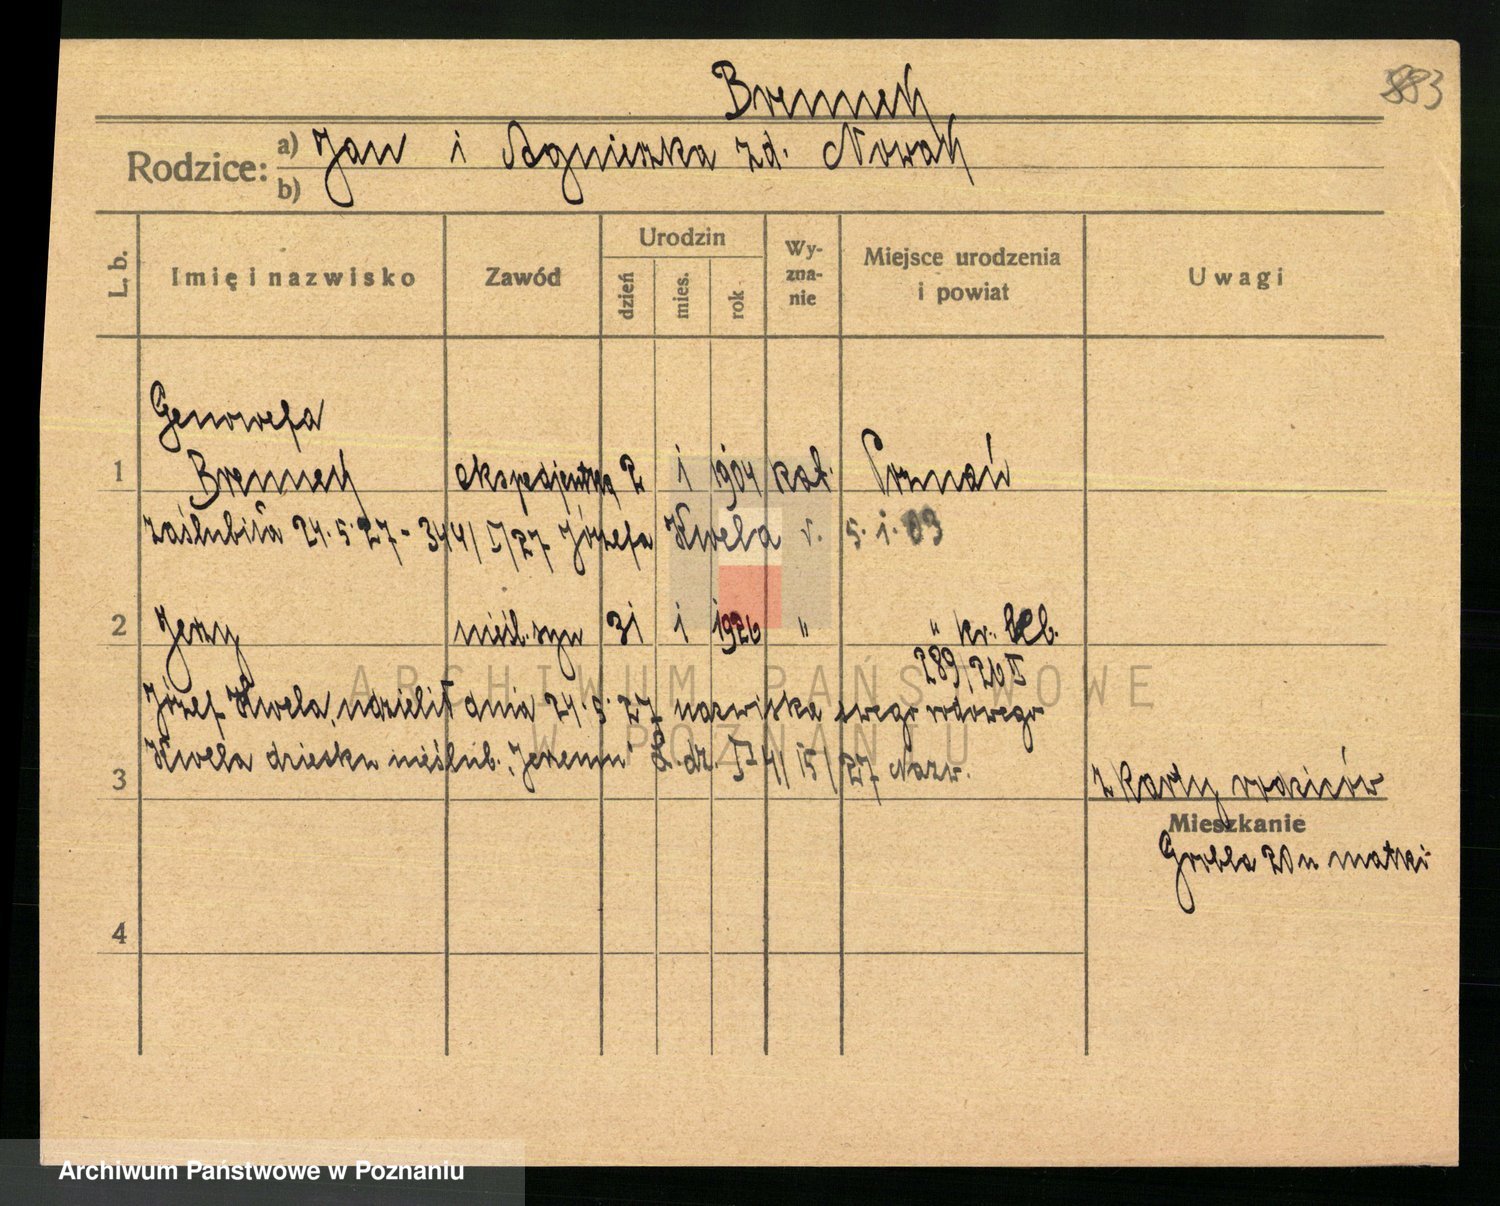 Brennek
883
Rodzice: a) Jan i Agnieszka zd. Nowak
b)
L. b.
Imię i nazwisko
Zawód
Urodzin
dzień
mies.
rok
Wy-
zna-
nie
Miejsce urodzenia
i powiat
Uwagi
Genowefa
1 Brennek ekspedjentka 2 i 1904 kat. Poznań
zaślubiła 24.5.27 - 344/I/27 Józefa Kwela r. 5.i.03
2 Jerzy nieśl. syn 31 i 1926 " " kr.
289/26 I
Józef Kwela, udzielił dnia 24.5.27 nazwiska swego rodowego
Kwela dziecku nieślub. "Jerzemu" L.dz. I-41/15/27 Nazw.
3
z karty rodziców
Mieszkanie
Grobla 20 u matki
4
ARCHIWUM PAŃSTWOWE
W POZNANIU
Archiwum Państwowe w Poznaniu